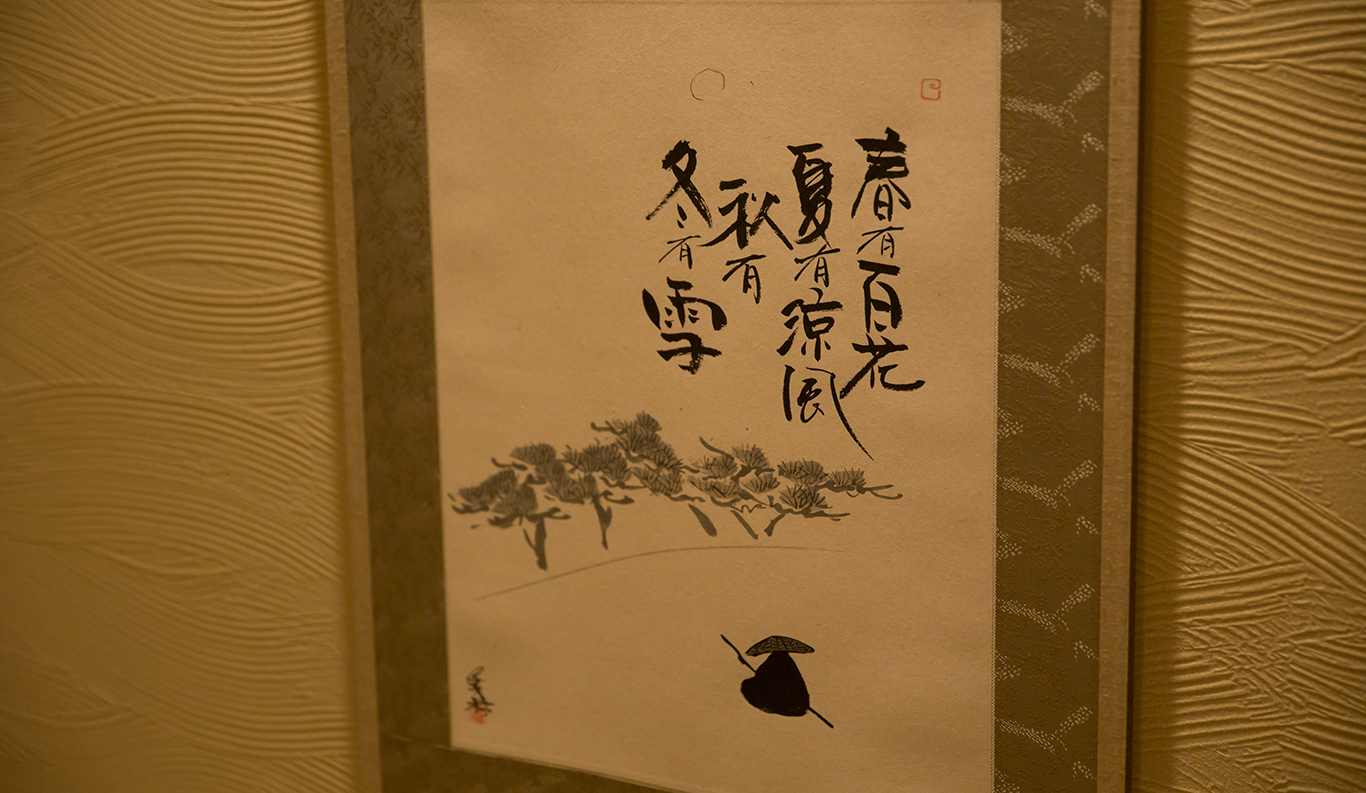 春有百花
夏有涼風
秋有
冬有雪